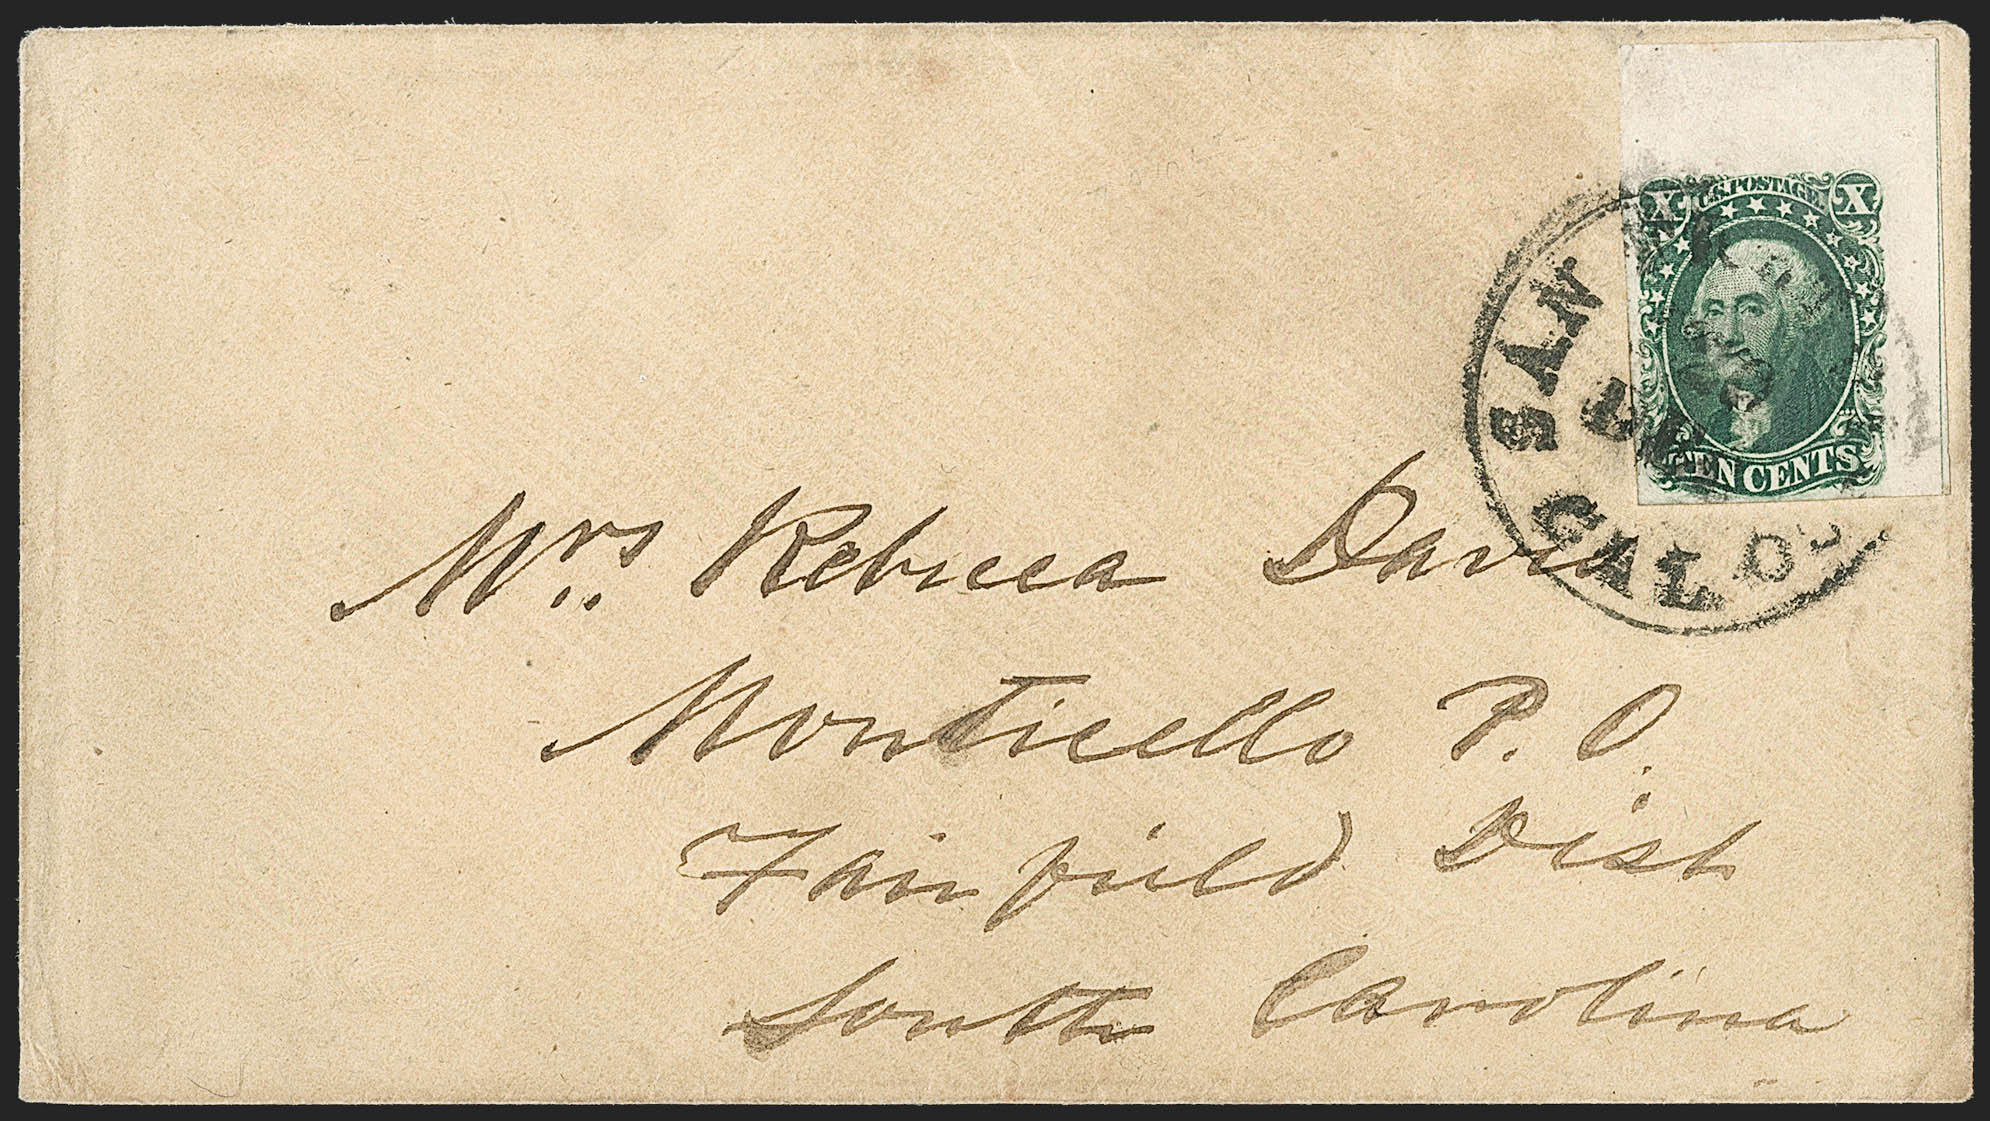 U.S. POSTAGE.
X X
TEN CENTS
SAN
CAL.
Mrs. Rebecca Davis
Monticello P. O.
Fairfield Dist
South Carolina